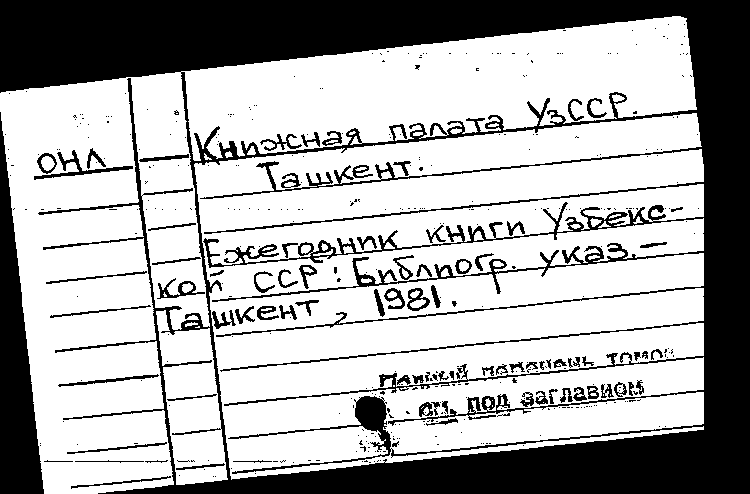 ОНЛ
Книжная палата УзССР.
Ташкент.
Ежегодник книги Узбекс-
кой ССР : Библиогр. указ. —
Ташкент, 1981.
Полный перечень томов
см. под заглавием